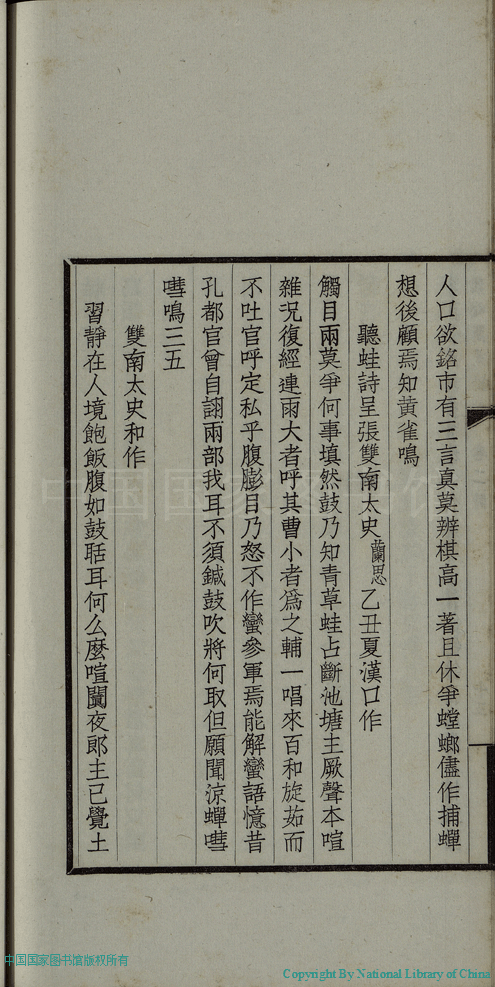 人口欲銘市有三言真莫辨棋高一著且休爭螳螂儘作捕蟬
想後顧焉知黄雀鳴
聽蛙詩呈張雙南太史蘭思乙丑夏漢口作
觸目兩莫爭何事填然鼓乃知青草蛙占斷池塘主厥聲本喧
雜況復經連雨大者呼其曹小者爲之輔一唱來百和旋茹而
不吐官呼定私乎腹膨目乃怒不作蠻參軍焉能解蠻語憶昔
孔都官曾自詡兩部我耳不須鍼鼓吹將何取但願聞涼蟬嘒
嘒鳴三五
雙南太史和作
習靜在人境飽飯腹如鼓聒耳何么麼喧闐夜郎主已覺土
中国国家图书馆版权所有
Copyright By National Library of China